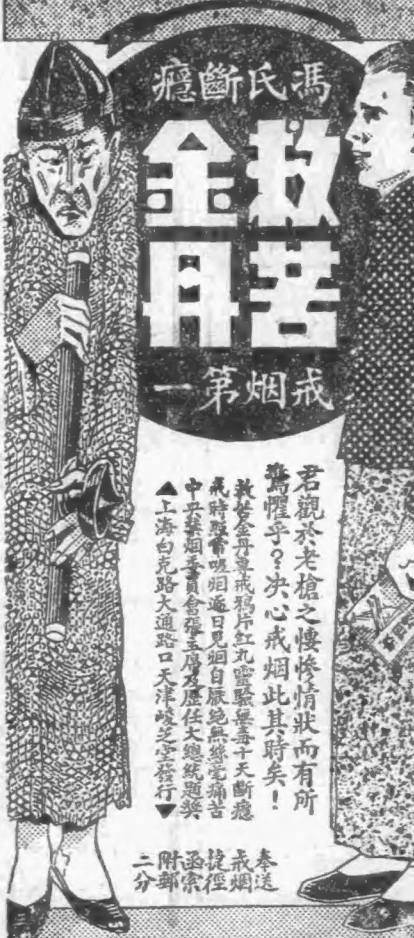 馮氏斷癮
救苦
金丹
戒烟第一
君觀於老槍之悽慘情狀而有所
驚惧乎?决心戒烟此其時矣!
救苦金丹專戒鴉片紅丸靈驗無毒十天斷癮
戒時照常吸烟逐日見烟自厭絕無絲毫痛苦
中央禁烟委員會張主席及歷任大總統題獎
▲上海白克路大通路口天津峻芝堂發行▼
奉送
戒烟
捷徑
函索
附郵
二分